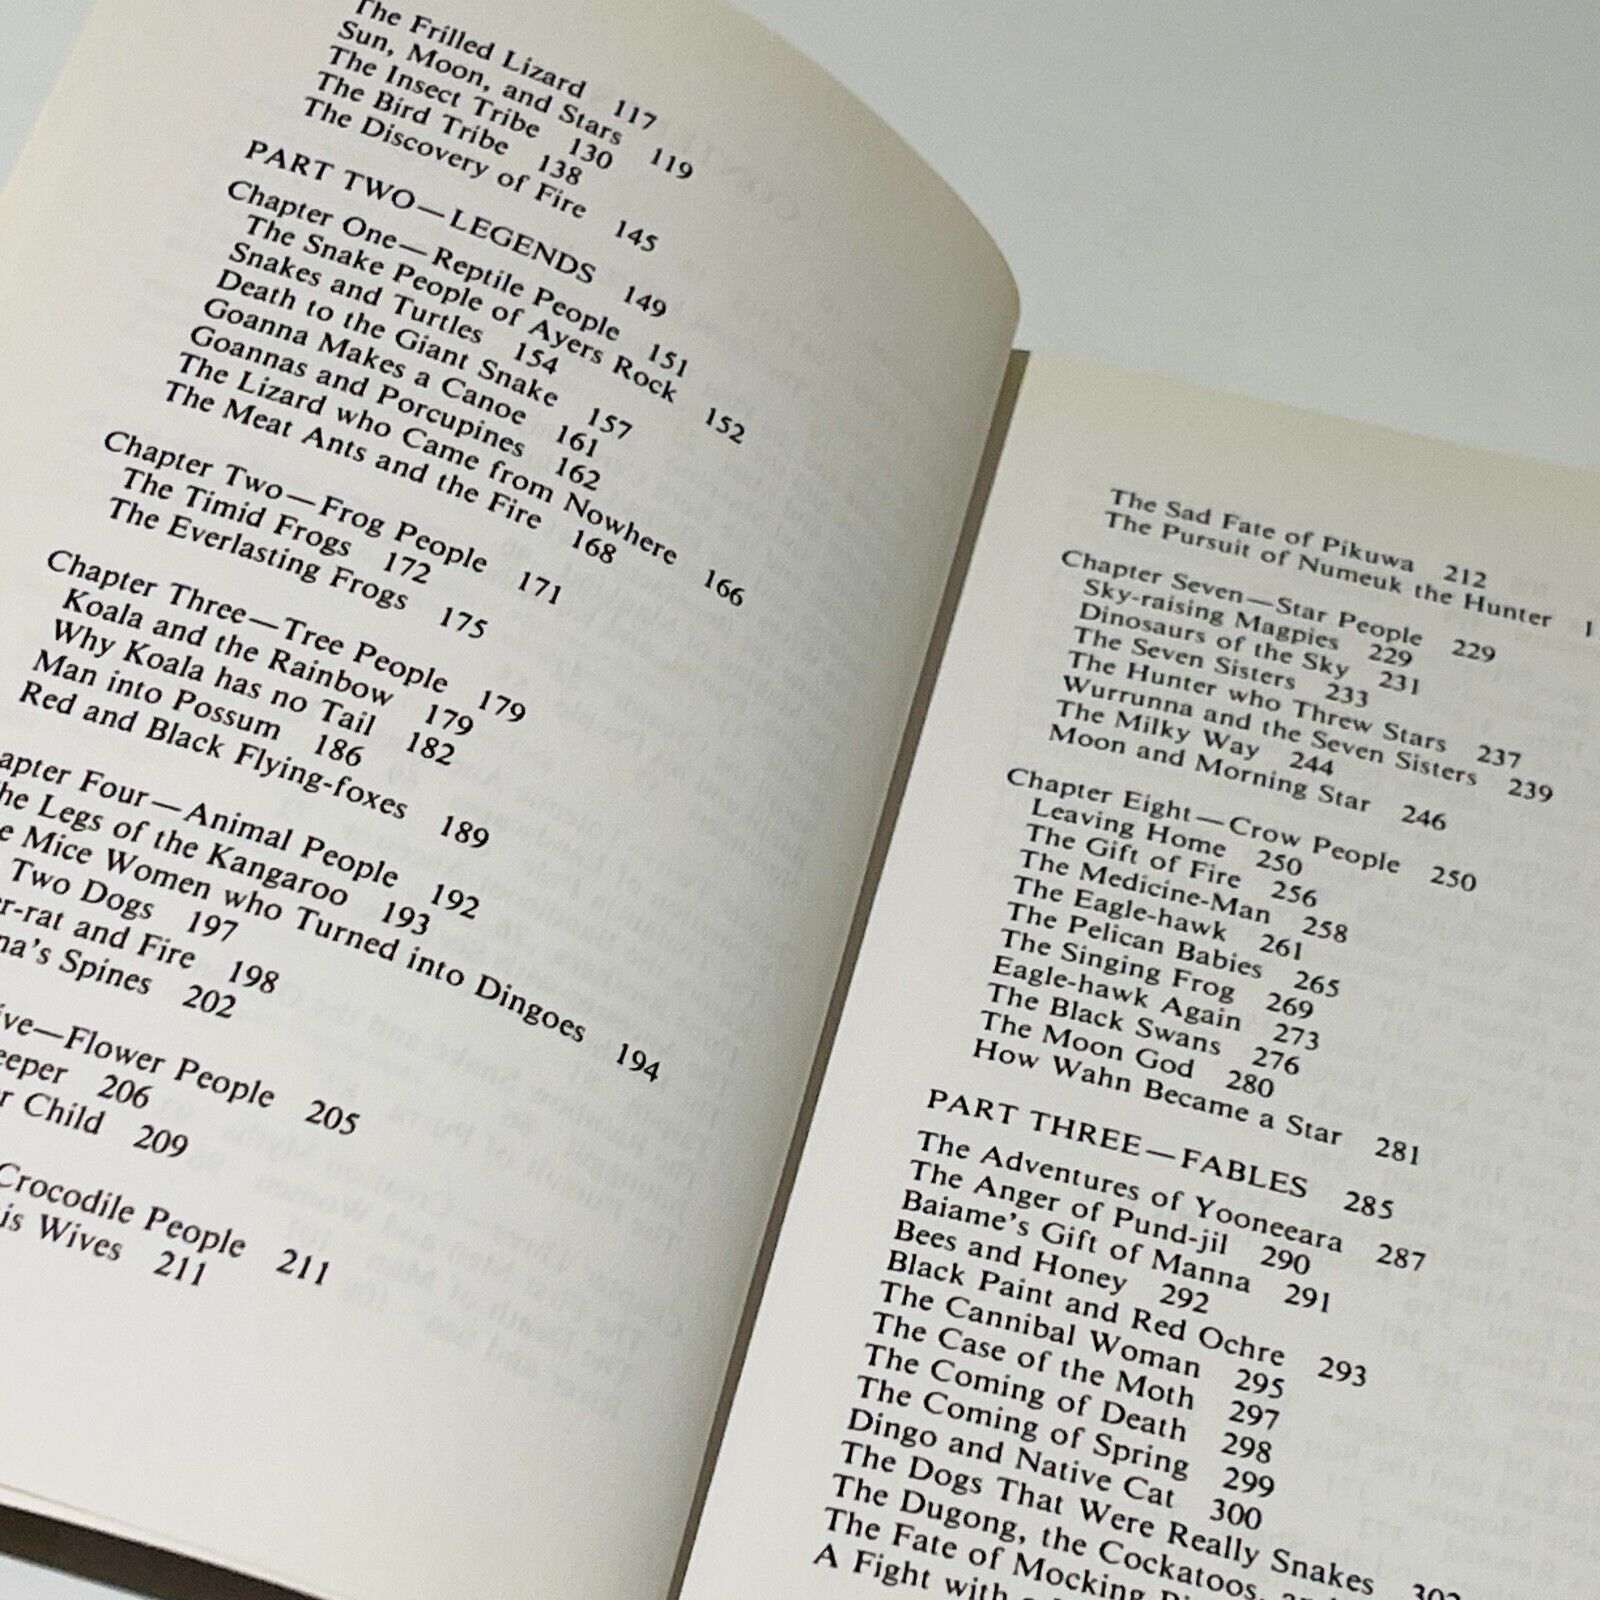 The Frilled Lizard 117
Sun, Moon, and Stars 119
The Insect Tribe 130
The Bird Tribe 138
The Discovery of Fire 145
PART TWO—LEGENDS 149
Chapter One—Reptile People 151
The Snake People of Ayers Rock 152
Snakes and Turtles 154
Death to the Giant Snake 157
Goanna Makes a Canoe 161
Goannas and Porcupines 162
The Lizard who Came from Nowhere 166
The Meat Ants and the Fire 168
Chapter Two—Frog People 171
The Timid Frogs 172
The Everlasting Frogs 175
Chapter Three—Tree People 179
Koala and the Rainbow 179
Why Koala has no Tail 182
Man into Possum 186
Red and Black Flying-foxes 189
apter Four—Animal People 192
he Legs of the Kangaroo 193
e Mice Women who Turned into Dingoes 194
Two Dogs 197
er-rat and Fire 198
na's Spines 202
ive—Flower People 205
eeper 206
r Child 209
Crocodile People 211
is Wives 211
The Sad Fate of Pikuwa 212
The Pursuit of Numeuk the Hunter
Chapter Seven—Star People 229
Sky-raising Magpies 229
Dinosaurs of the Sky 231
The Seven Sisters 233
The Hunter who Threw Stars 237
Wurrunna and the Seven Sisters 239
The Milky Way 244
Moon and Morning Star 246
Chapter Eight—Crow People 250
Leaving Home 250
The Gift of Fire 256
The Medicine-Man 258
The Eagle-hawk 261
The Pelican Babies 265
The Singing Frog 269
Eagle-hawk Again 273
The Black Swans 276
The Moon God 280
How Wahn Became a Star 281
PART THREE—FABLES 285
The Adventures of Yooneeara 287
The Anger of Pund-jil 290
Baiame's Gift of Manna 291
Bees and Honey 292
Black Paint and Red Ochre 293
The Cannibal Woman 295
The Case of the Moth 297
The Coming of Death 298
The Coming of Spring 299
Dingo and Native Cat 300
The Dogs That Were Really Snakes 302
The Dugong, the Cockatoos,
The Fate of Mocking
A Fight with a